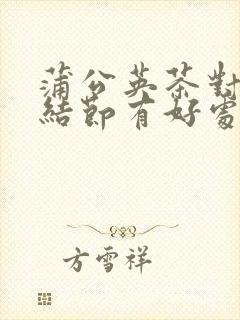 蒲公英茶對
結節有好處
方雪祥